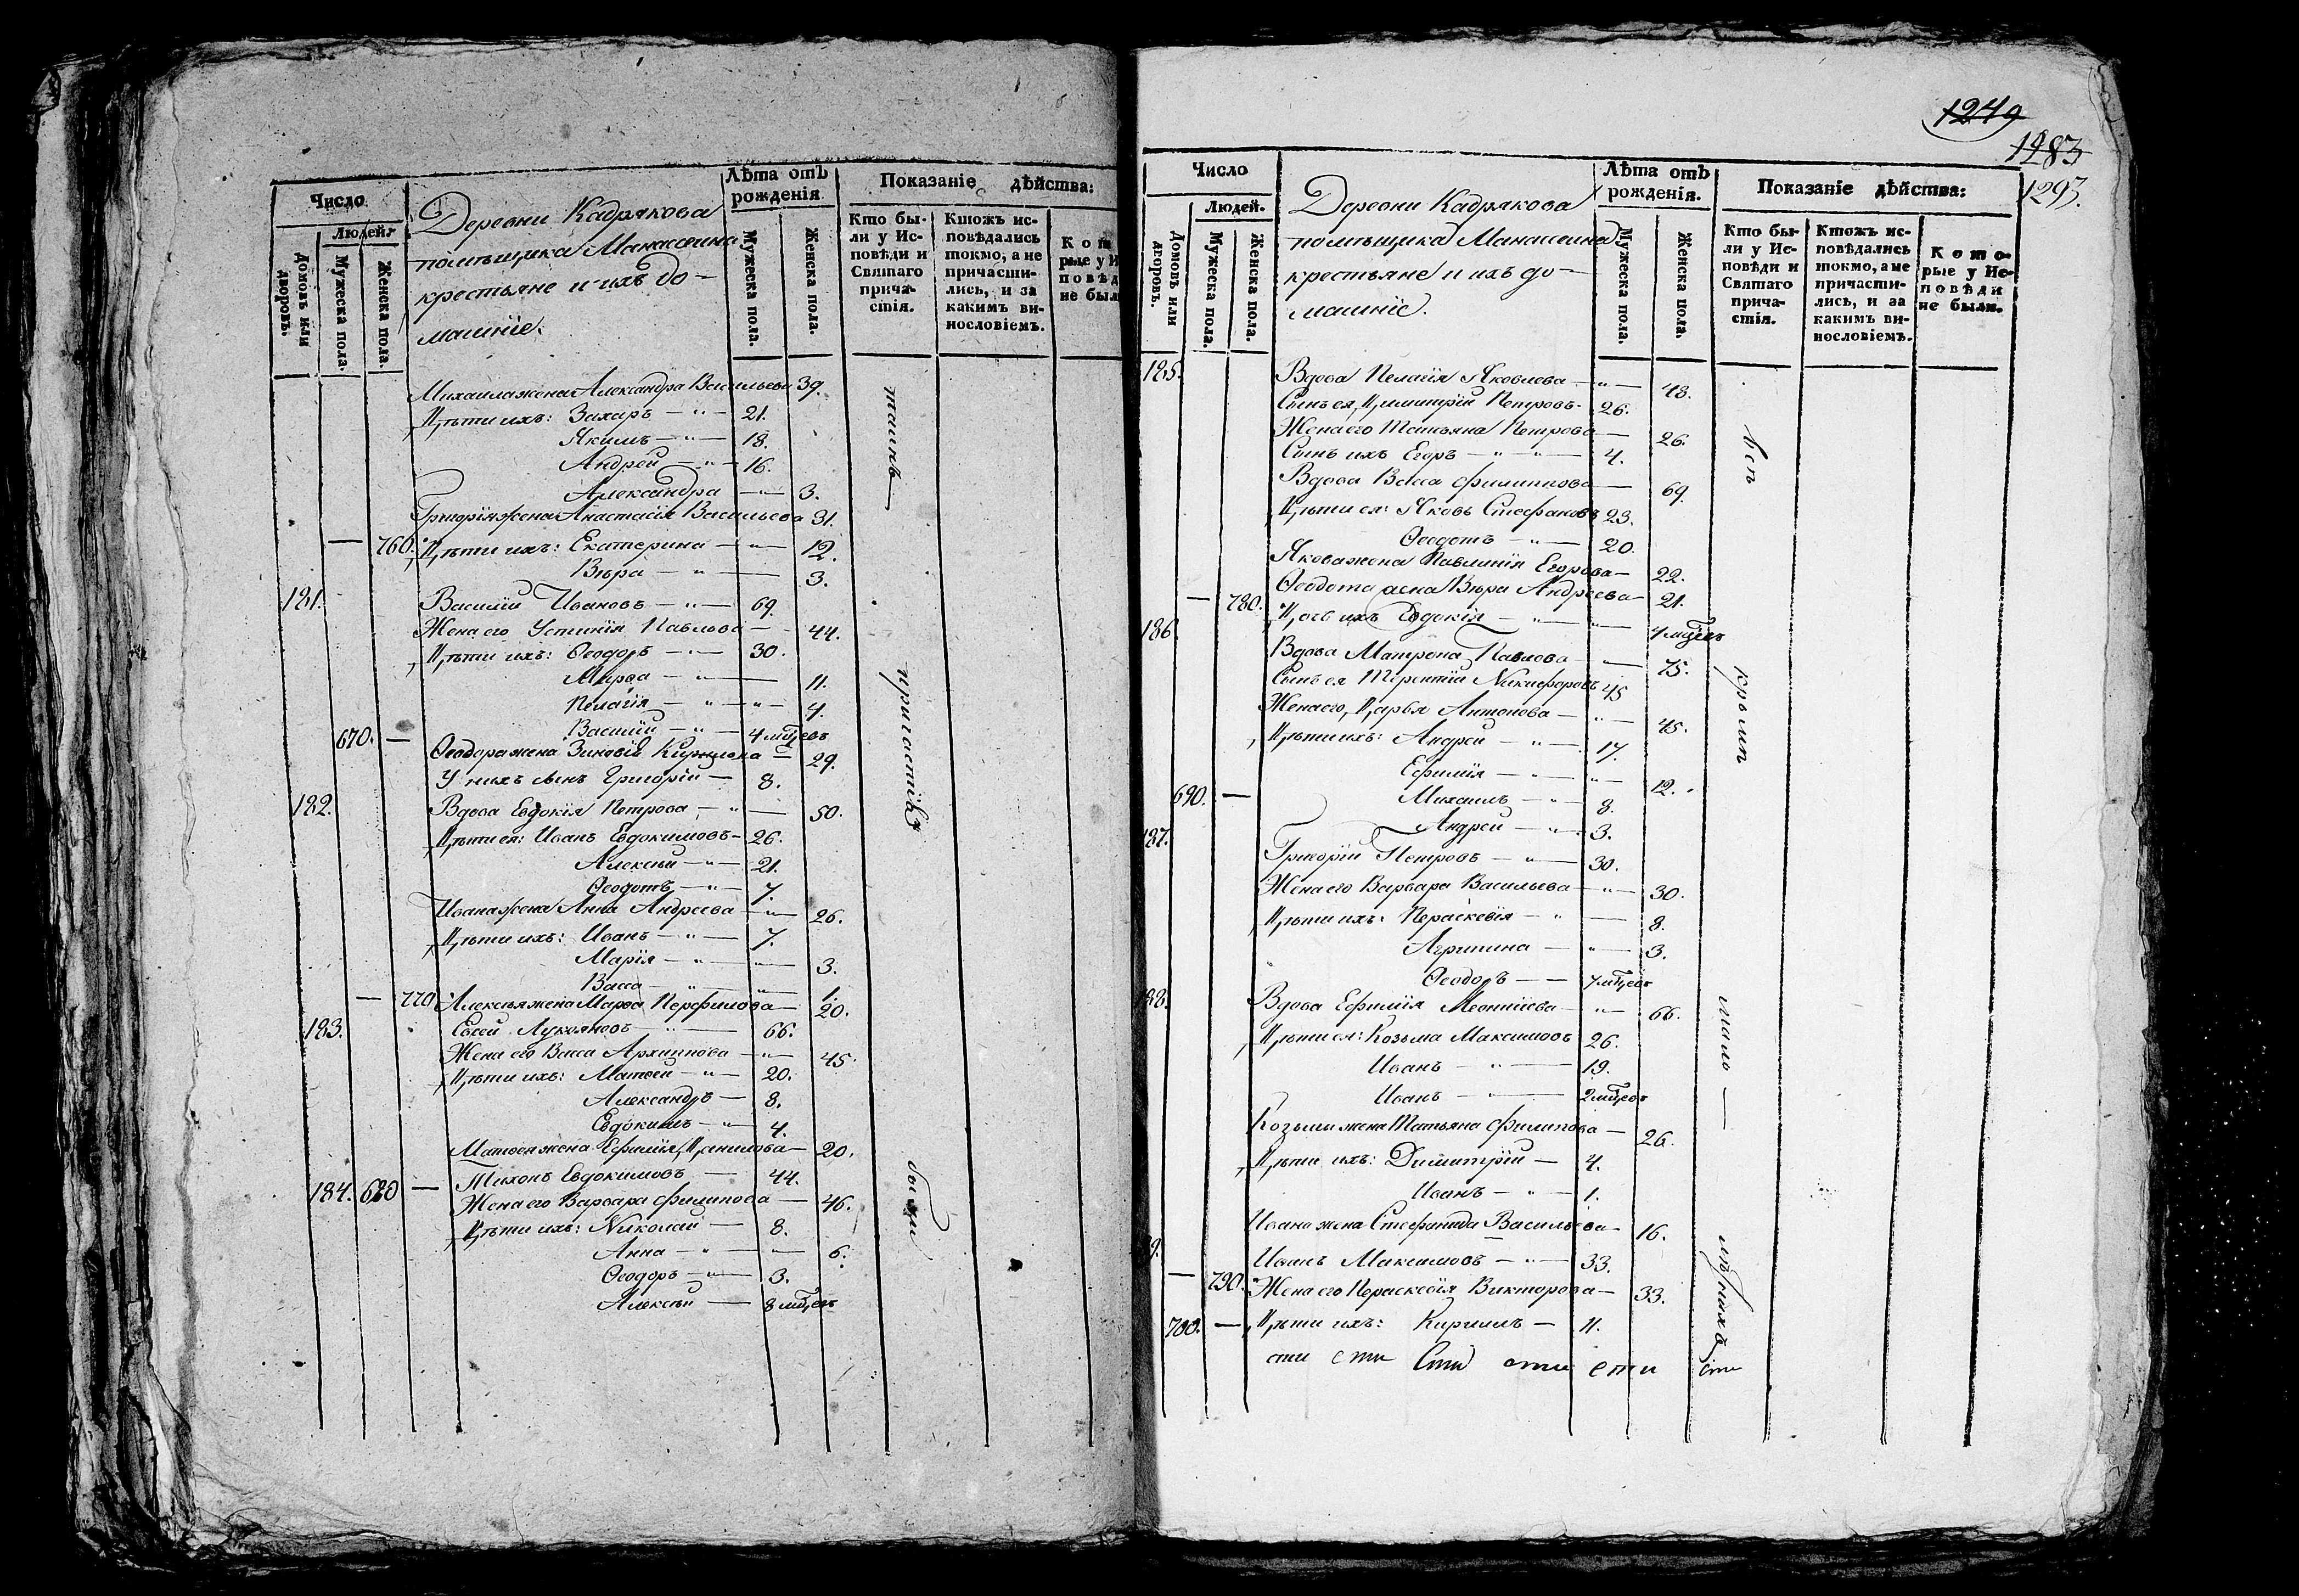 Число
Людей.
Домовъ или дворовъ.
Мужеска пола.
Женска пола.
Деревни Кадрякова
помѣщика Манасеина
крестьяне и ихъ до-
машніе.
Лѣта отъ
рожденія
Мужеска пола.
Женска пола.
Показаніе дѣйства:
Кто бы-
ли у Ис-
повѣди и
Святаго
прича-
стія.
Ктожъ ис-
повѣдались
токмо, а не
причасти-
лись, и за
какимъ ви-
нословіемъ.
Михаила жена Александра Васильева 39.
Дѣти ихъ: Захаръ — „ — 21.
Якимъ — „ — 18.
Андрей — „ — 16.
Александра — „ — 3.
Григорія жена Анастасія Васильева 31.
— 760. Дѣти ихъ: Екатерина — „ — 12.
Вѣра — „ — 3.
181. Василій Ивановъ — „ — 69.
Жена его Устинія Павлова — 44.
Дѣти ихъ: Ѳеодоръ — „ — 30.
Марѳа — „ — 11.
Пелагія — „ — „ — 4.
670. — Василій — „ — 4 мцевъ
Ѳеодора жена Зиновія Кирилова — 29.
У нихъ сынъ Григорій — 8.
182. Вдова Евдокія Петрова — „ — 50.
Дѣти ея: Иванъ Евдокимовъ — 26.
Алексѣй — „ — 21.
Ѳеодотъ — „ — 7.
Ивана жена Анна Андреева — „ — 26.
Дѣти ихъ: Иванъ — „ — 7.
Марія — „ — „ — 3.
Васса — „ — „ — 1.
— 770 Алексѣя жена Марѳа Перфилова — 20.
183. Евсей Лукояновъ — „ — 66.
Жена его Васа Архипова — „ — 45.
Дѣти ихъ: Матѳей — „ — 20.
Александръ — 8.
Евдокимъ — „ — 4.
Матѳея жена Ефимія Данилова — 20.
184. 680 — Тихонъ Евдокимовъ — 44.
Жена его Варвара Филипова — 46.
Дѣти ихъ: Николай — 8.
Анна — „ — „ — 6.
Ѳеодоръ — „ — 3.
Алексѣй — 8 мцевъ
таинъ —
причастіѣ
были
1249
1283
1293.
Число
Людей.
Домовъ или дворовъ.
Мужеска пола.
Женска пола.
Деревни Кадрякова
помѣщика Манасеина
крестьяне и ихъ до-
машніе.
Лѣта отъ
рожденія.
Мужеска пола.
Женска пола.
Показаніе дѣйства:
Кто бы-
ли у Ис-
повѣди и
Святаго
прича-
стія.
Ктожъ ис-
повѣдались
токмо, а не
причасти-
лись, и за
какимъ ви-
нословіемъ.
Кото-
рые у Ис-
повѣди
не были.
185. Вдова Пелагія Яковлева — „ — 48.
Сынъ ея Димитрій Петровъ — 26.
Жена его Татьяна Петрова — 26.
Сынъ ихъ Егоръ — „ — „ — 4.
Вдова Васса Филипова — 69.
Дѣти ея: Яковъ Стефановъ 23.
Ѳеодотъ — „ — 20.
Якова жена Павлинія Егорова — 22.
Ѳеодота жена Вѣра Андреева — 21.
— 780. Дочь ихъ Евдокія — „ — „ — 4 мцевъ
186. Вдова Матрона Павлова — „ — 75.
Сынъ ея Терентій Никифоровъ 45
Жена его Дарья Антонова — „ — 45.
Дѣти ихъ: Андрей — „ — 17.
Ефимія — „ — „ — 12.
690. — Михаилъ — „ — 8.
Андрей — „ — 3.
187. Григорій Петровъ — „ — 30.
Жена его Варвара Васильева — „ — 30.
Дѣти ихъ: Параскевія — „ — 8.
Агрипина — „ — 3.
Ѳеодоръ — — 7 мцевъ
188. Вдова Ефимія Леонтіева — „ — 66.
Дѣти ея: Козьма Максимовъ 26.
Иванъ — „ — 19.
Иванъ — „ — 2 мцевъ
Козьмы жена Татьяна Филипова — 26.
Дѣти ихъ: Димитрій — 4.
Иванъ — „ — 1.
Ивана жена Стефанида Васильева — 16.
9. Иванъ Максимовъ — „ — 33.
— 790. Жена его Параскевія Викторова — 33.
700. — Дѣти ихъ: Кирилъ — 11.
сти сти Сти сти сти сти
кромѣ
мало —
лѣтнихъ